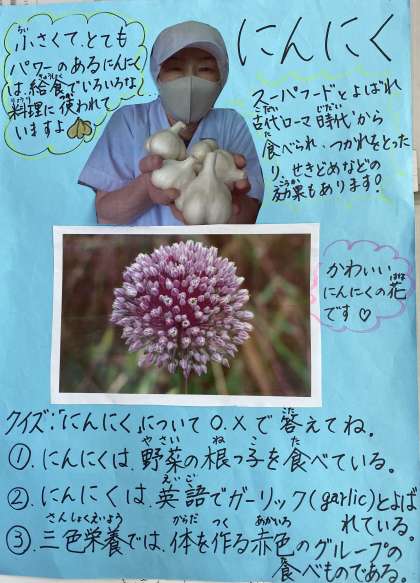 にんにく
小さくて、とても
パワーのあるにんにく
は、給食でいろいろな
料理に使われて
いますよ
スーパーフードとよばれ
古代ローマ時代から
食べられ、つかれをとった
り、せきどめなどの
効果もあります!
かわいい
にんにくの花
です♡
クイズ:「にんにく」について○.×で答えてね。
①.にんにくは、野菜の根っ子を食べている。
②.にんにくは、英語でガーリック(garlic)とよば
れている。
③.三色栄養では、体を作る赤色のグループの
食べものである。